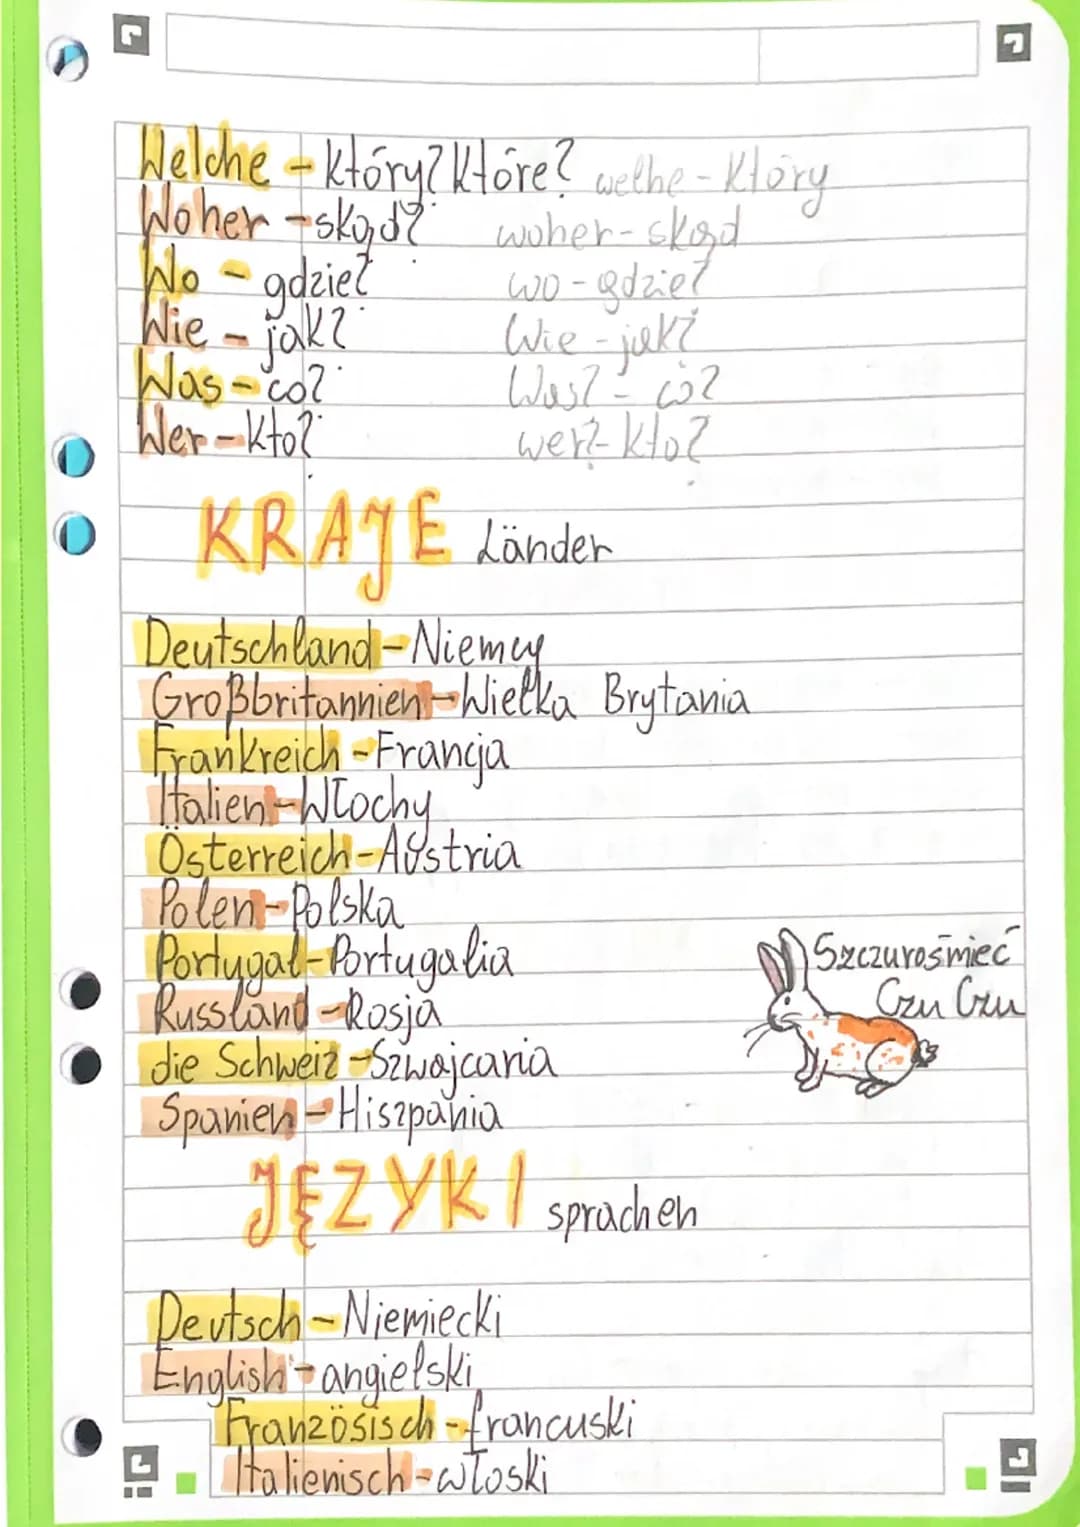 Welche - który? które? welhe - który
Woher - skąd? woher - skąd
Wo - gdzie? wo - gdzie?
Wie - jak? Wie - jak?
Was - co? Was? - co?
Wer - kto? wer? - kto?
KRAJE Länder
Deutschland - Niemcy
Großbritannien - Wielka Brytania
Frankreich - Francja
Italien - Włochy
Österreich - Austria
Polen - Polska
Portugal - Portugalia
Russland - Rosja
die Schweiz - Szwajcaria
Spanien - Hiszpania
Szczurośmieć
Czu Czu
JĘZYKI sprachen
Deutsch - Niemiecki
English - angielski
Französisch - francuski
Italienisch - włoski